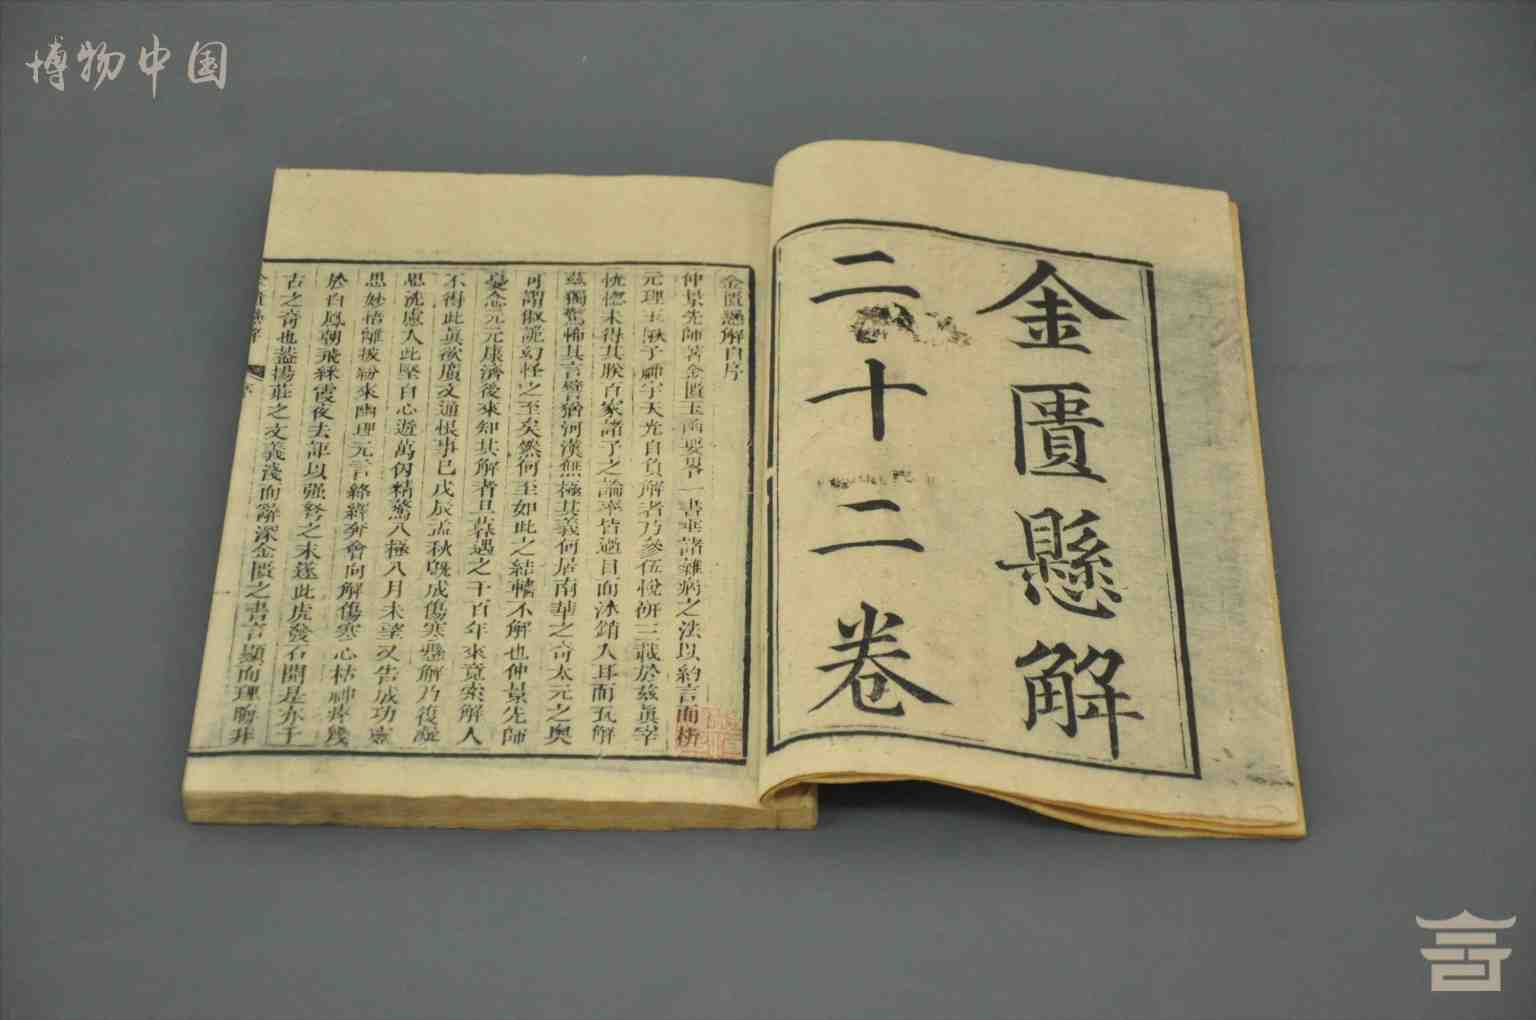 博物中国
金匱懸解
二十二卷
金匱懸解自序
仲景先師著金匱玉函要畧一書垂諸雜病之法以約言而析
元理玉楸子神宇天光自負解者乃參伍悅研三載於茲眞宰
恍惚未得其朕百家諸子之論率皆過目而冰銷入耳而瓦解
茲獨驚怖其言譬猶河漢無極其義何居南華之奇太元之奧
可謂俶詭幻怪之至矣然何至如此之結轖不解也仲景先師
憂念元元康濟後來知其解者旦暮遇之千百年來竟索解人
不得此眞欲廣文通恨事已戊辰孟秋旣成傷寒懸解乃復凝
思洗慮入此堅白心遊萬仞精騖八極八月未望又告成功靈
思妙悟離披紛來幽理元言絡繹奔會向解傷寒心枯神瘁幾
於白鳳朝飛綵霞夜去詎以强弩之末遂此虎發石開是亦千
古之奇也蓋揚莊之文義淺而辭深金匱之書言顯而理晦非